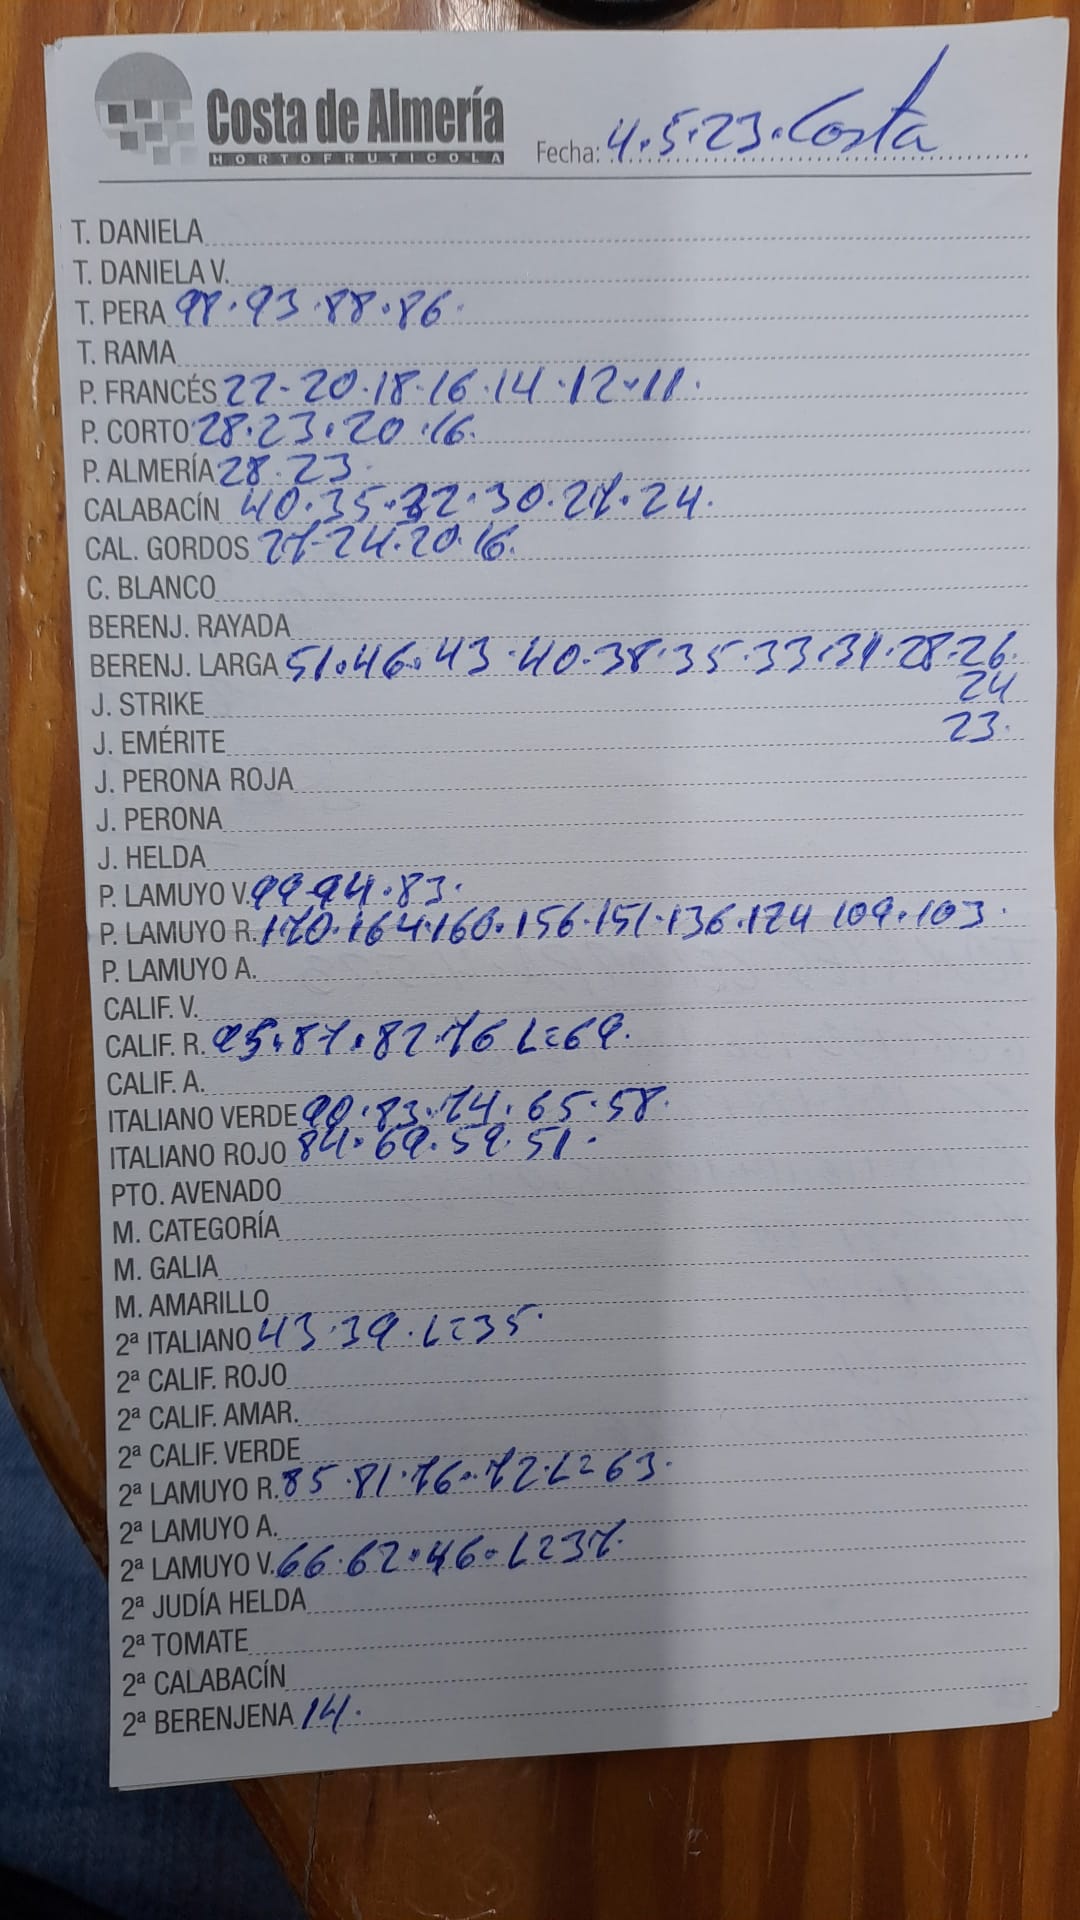 Costa de Almería
HORTOFRUTICOLA
Fecha: 4.5.23.Costa
T. DANIELA
T. DANIELA V.
T. PERA 98.93.88.86.
T. RAMA
P. FRANCÉS 22-20.18.16.14.12.11.
P. CORTO 28.23.20.16.
P. ALMERÍA 28.23.
CALABACÍN 40.35.32.30.27.24.
CAL. GORDOS 27-24.20.16.
C. BLANCO
BERENJ. RAYADA
BERENJ. LARGA 51.46.43.40.38.35.33.31.28.26.
J. STRIKE 24
J. EMÉRITE 23.
J. PERONA ROJA
J. PERONA
J. HELDA
P. LAMUYO V. 99.94.83.
P. LAMUYO R. 170.164.160.156.151.136.124 109.103.
P. LAMUYO A.
CALIF. V.
CALIF. R. 95.87.82.76 L=69.
CALIF. A.
ITALIANO VERDE 90.83.74.65.58.
ITALIANO ROJO 84.69.59.51.
PTO. AVENADO
M. CATEGORÍA
M. GALIA
M. AMARILLO
2ª ITALIANO 43.39.L=35.
2ª CALIF. ROJO
2ª CALIF. AMAR.
2ª CALIF. VERDE
2ª LAMUYO R. 85.81.76.72.L=63.
2ª LAMUYO A.
2ª LAMUYO V. 66.62.46.L=37.
2ª JUDÍA HELDA
2ª TOMATE
2ª CALABACÍN
2ª BERENJENA 14.